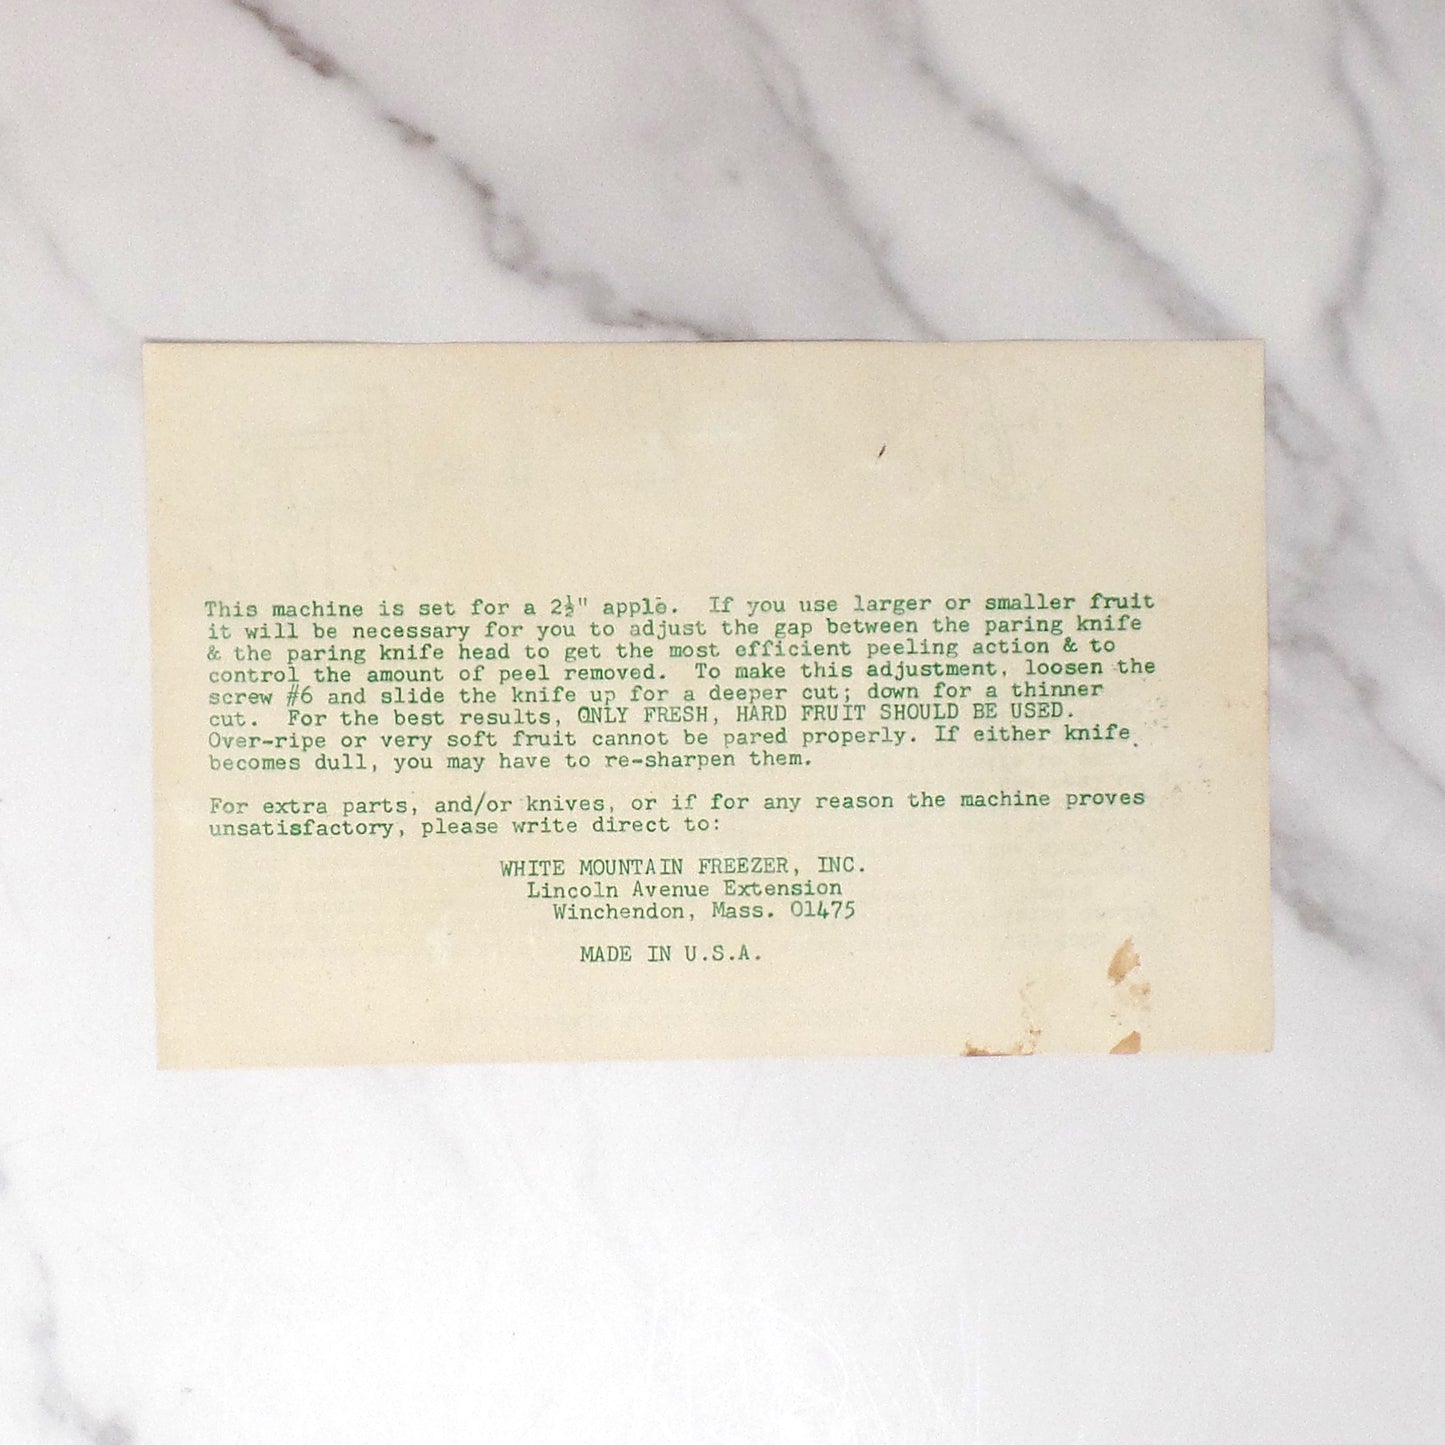 This machine is set for a 2½" apple.  If you use larger or smaller fruit
it will be necessary for you to adjust the gap between the paring knife
& the paring knife head to get the most efficient peeling action & to
control the amount of peel removed.  To make this adjustment, loosen the
screw #6 and slide the knife up for a deeper cut; down for a thinner
cut.  For the best results, ONLY FRESH, HARD FRUIT SHOULD BE USED.
Over-ripe or very soft fruit cannot be pared properly. If either knife
becomes dull, you may have to re-sharpen them.
For extra parts, and/or knives, or if for any reason the machine proves
unsatisfactory, please write direct to:
WHITE MOUNTAIN FREEZER, INC.
Lincoln Avenue Extension
Winchendon, Mass. 01475
MADE IN U.S.A.